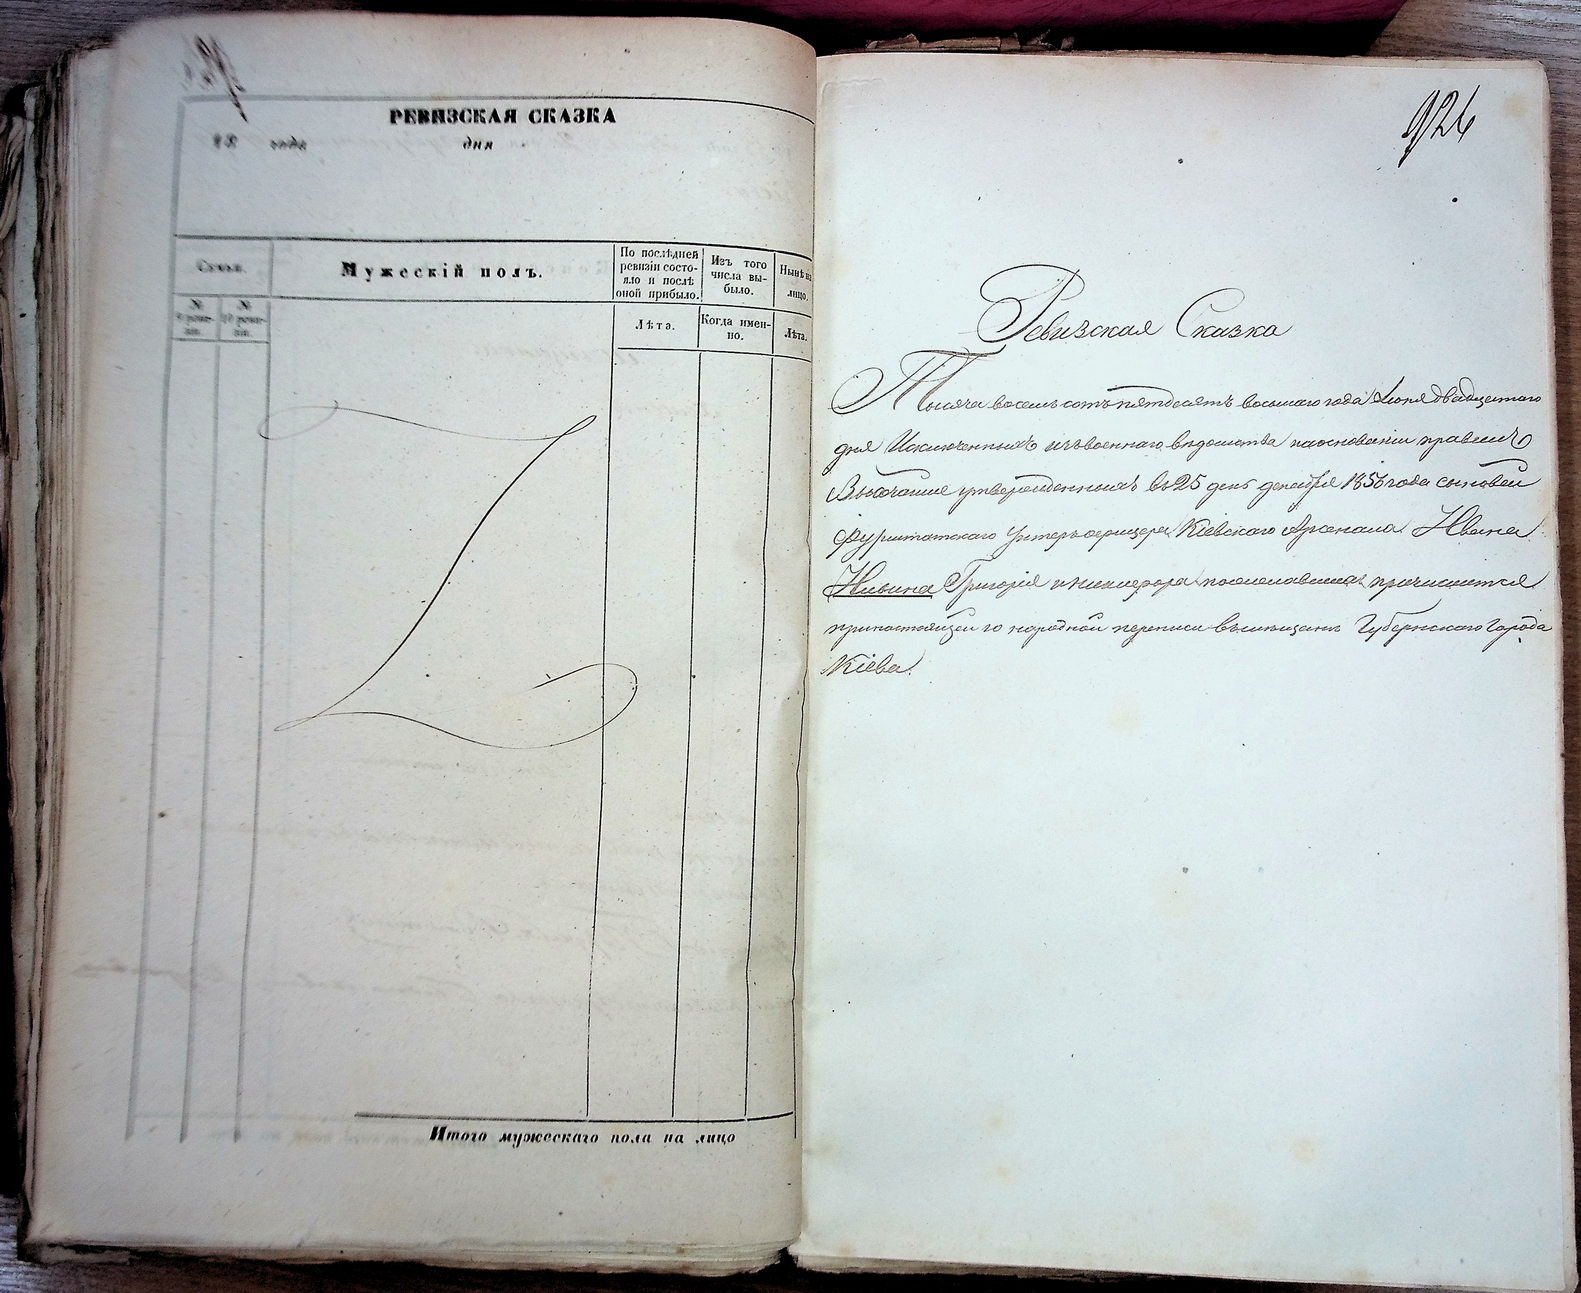 РЕВИЗСКАЯ СКАЗКА
18 года дня
Семьи.
Мужескій полъ.
По послѣдней
ревизіи состо-
яло и послѣ
оной прибыло.
Изъ того
числа вы-
было.
Нынѣ на
лицо.
№
9 реви-
зіи.
№
10 реви-
зіи.
Лѣта.
Когда имен-
но.
Лѣта.
Итого мужескаго пола на лицо
926
Ревизская Сказка
Тысяча восемь сотъ пятдесятъ восьмаго года Июня двадцатаго
дня Исключенныхъ изъ военнаго вѣдомства на основаніи правилъ
Высочайше утвержденныхъ въ 25 день декабря 1856 года сыновей
Фурштатскаго Унтеръ офицера Кіевскаго Арсенала Ивана
Ильина Григорія и Никифора причисляется
по народной переписи въ мѣщане Губернскаго Города
Кіева.